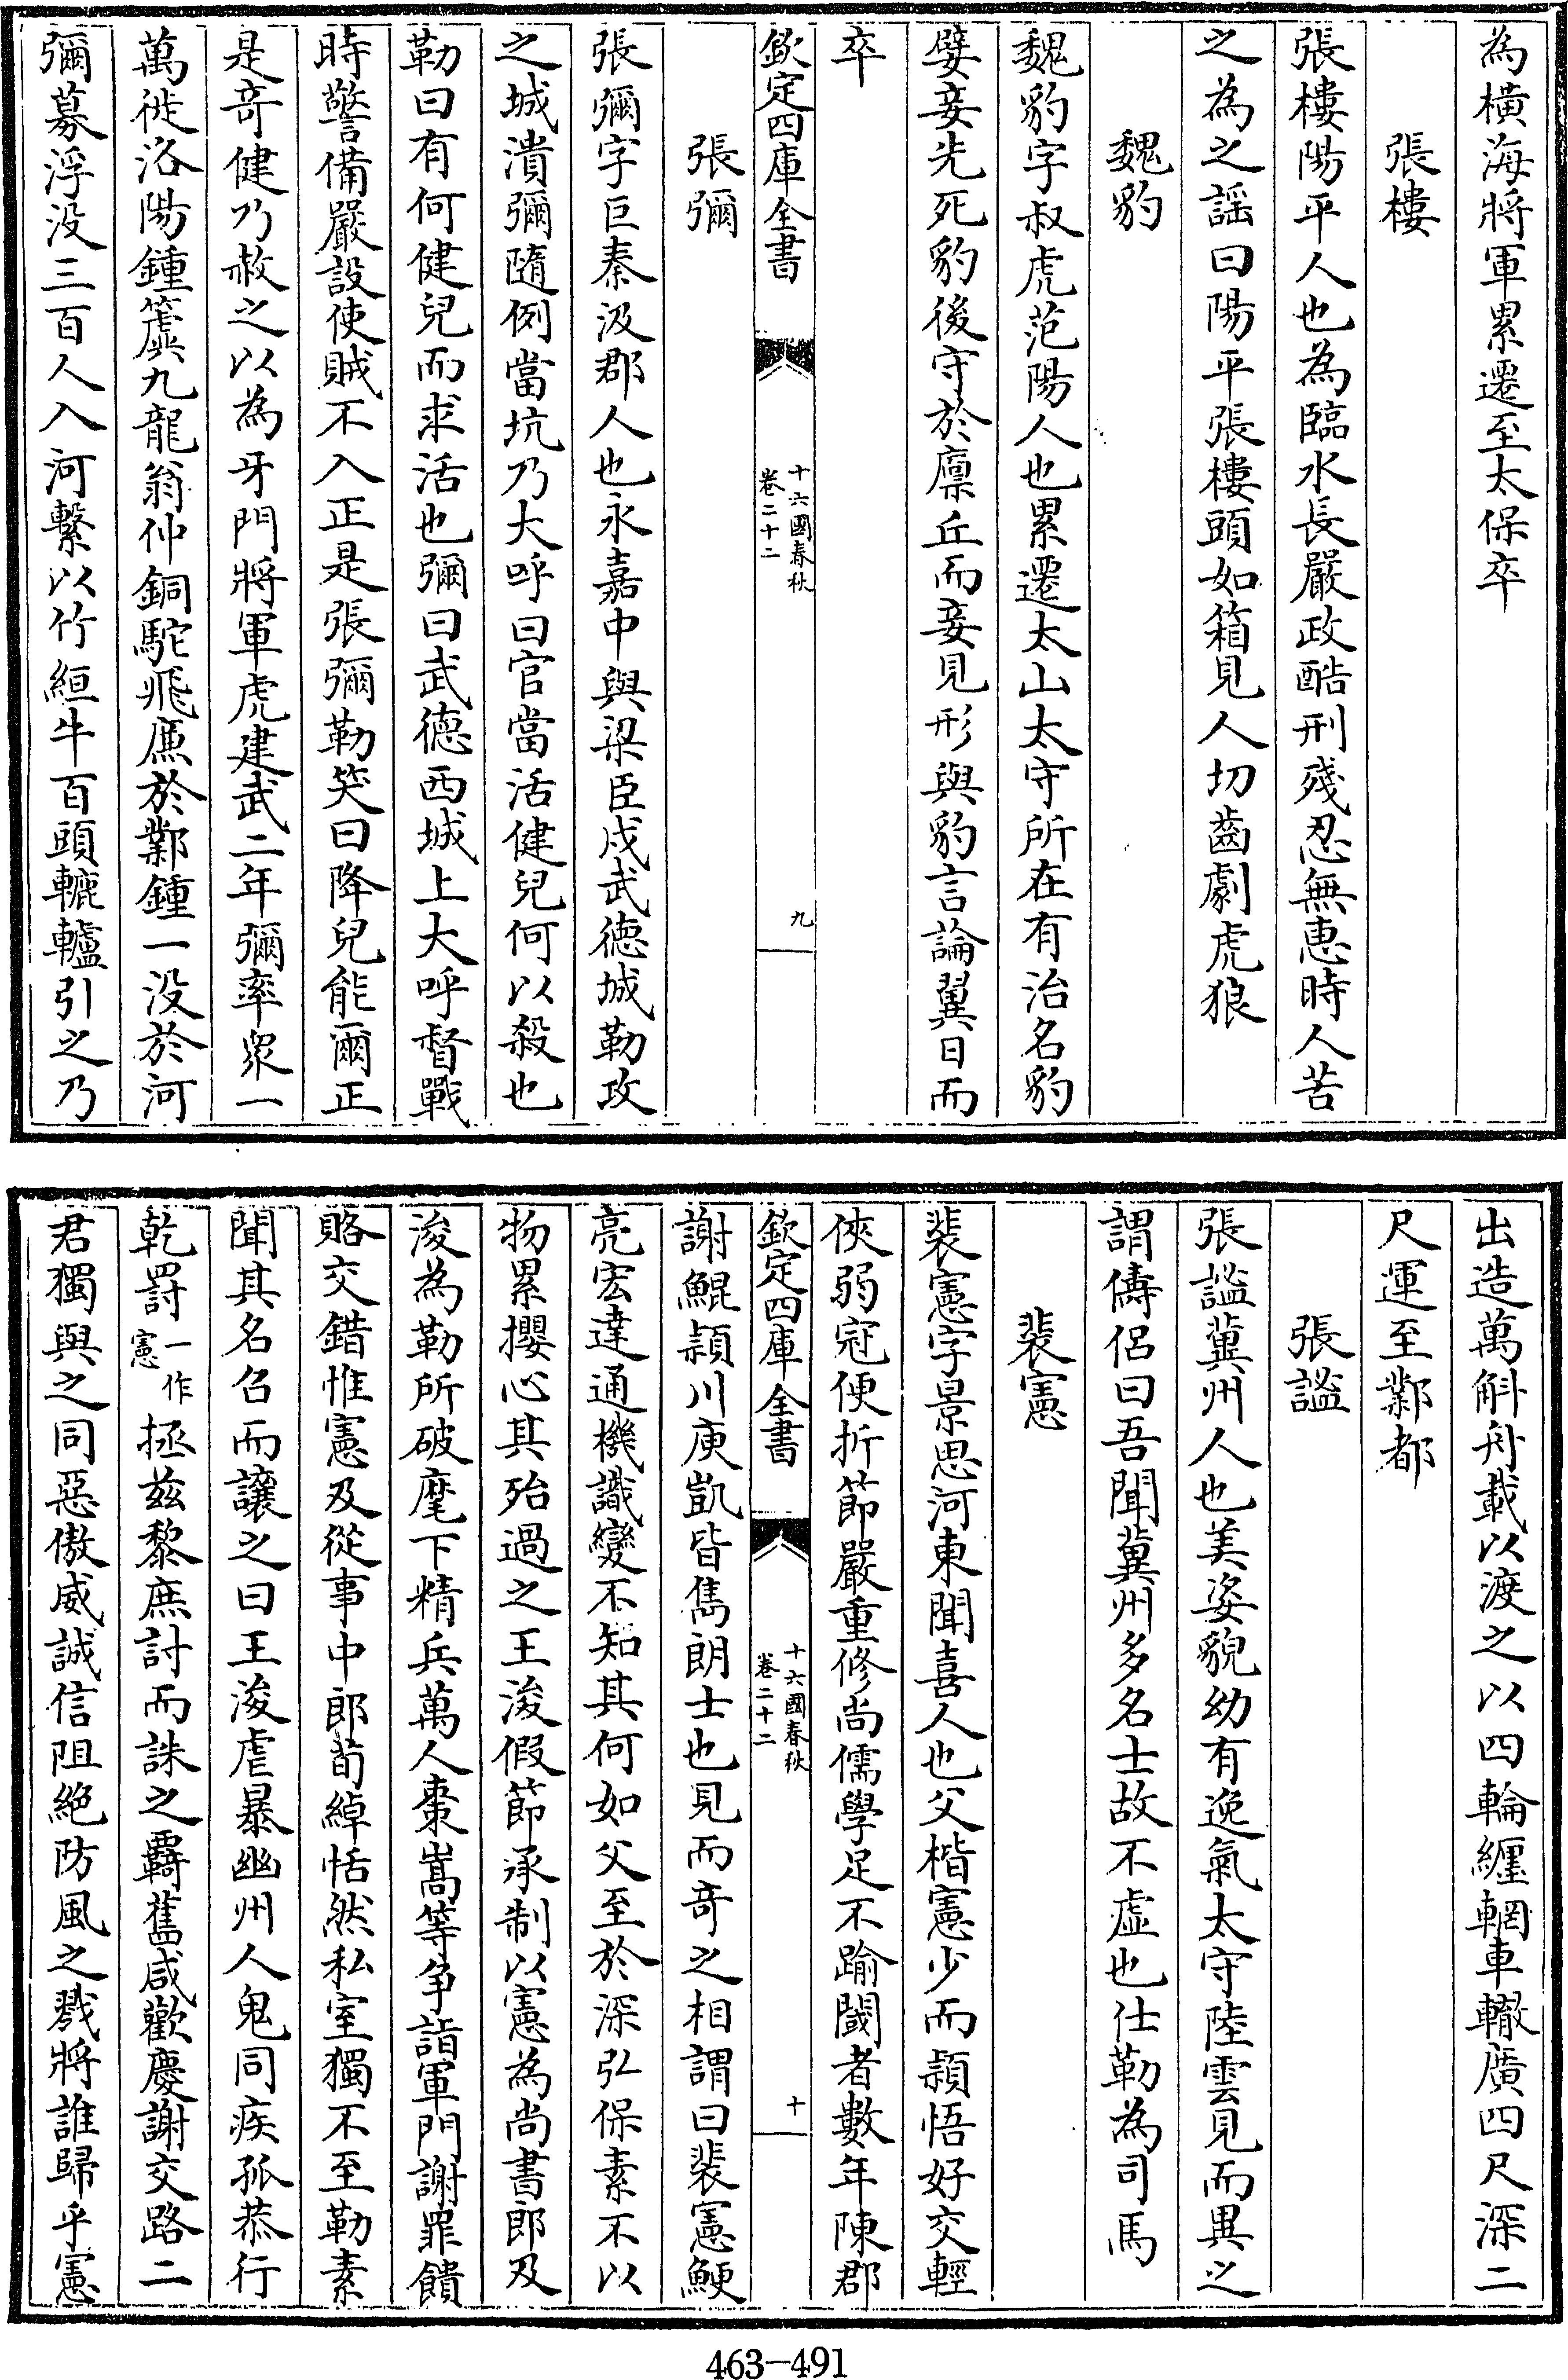 為橫海將軍累遷至太保卒
張樓
張樓陽平人也為臨水長嚴政酷刑殘忍無恵時人苦
之為之謡曰陽平張樓頭如箱見人切齒劇虎狼
魏豹
魏豹字叔虎范陽人也累遷太山太守所在有治名豹
嬖妾先死豹後守於廪丘而妾見形與豹言論翼日而
卒
欽定四庫全書
十六國春秋
卷二十二
九
張彌
張彌字巨秦汲郡人也永嘉中與梁臣戍武德城勒攻
之城潰彌隨例當坑乃大呼曰官當活健兒何以殺也
勒曰有何健兒而求活也彌曰武德西城上大呼督戰
時警備嚴設使賊不入正是張彌勒笑曰降兒能爾正
是竒健乃赦之以為牙門將軍虎建武二年彌率衆一
萬徙洛陽鍾簴九龍翁仲銅駝飛廉於鄴鍾一没於河
彌募浮没三百人入河繫以竹絙牛百頭轆轤引之乃
出造萬斛舟載以渡之以四輪纒輞車轍廣四尺深二
尺運至鄴都
張謐
張謐冀州人也美姿貌幼有逸氣太守陸雲見而異之
謂儔侶曰吾聞冀州多名士故不虚也仕勒為司馬
裴憲
裴憲字景思河東聞喜人也父楷憲少而頴悟好交輕
俠弱冠便折節嚴重修尚儒學足不踰閾者數年陳郡
欽定四庫全書
十六國春秋
卷二十二
十
謝鯤頴川庾凱皆雋朗士也見而竒之相謂曰裴憲鯁
亮宏達通機識變不知其何如父至於深弘保素不以
物累攖心其殆過之王浚假節承制以憲為尚書郎及
浚為勒所破麾下精兵萬人棗嵩等争詣軍門謝罪饋
賂交錯惟憲及從事中郎荀綽恬然私室獨不至勒素
聞其名召而讓之曰王浚虐暴幽州人鬼同疾孤恭行
乾罸一作憲拯兹黎庶討而誅之覊舊咸歡慶謝交路二
君獨與之同惡傲威誠信阻絶防風之戮將誰歸乎憲
463-491